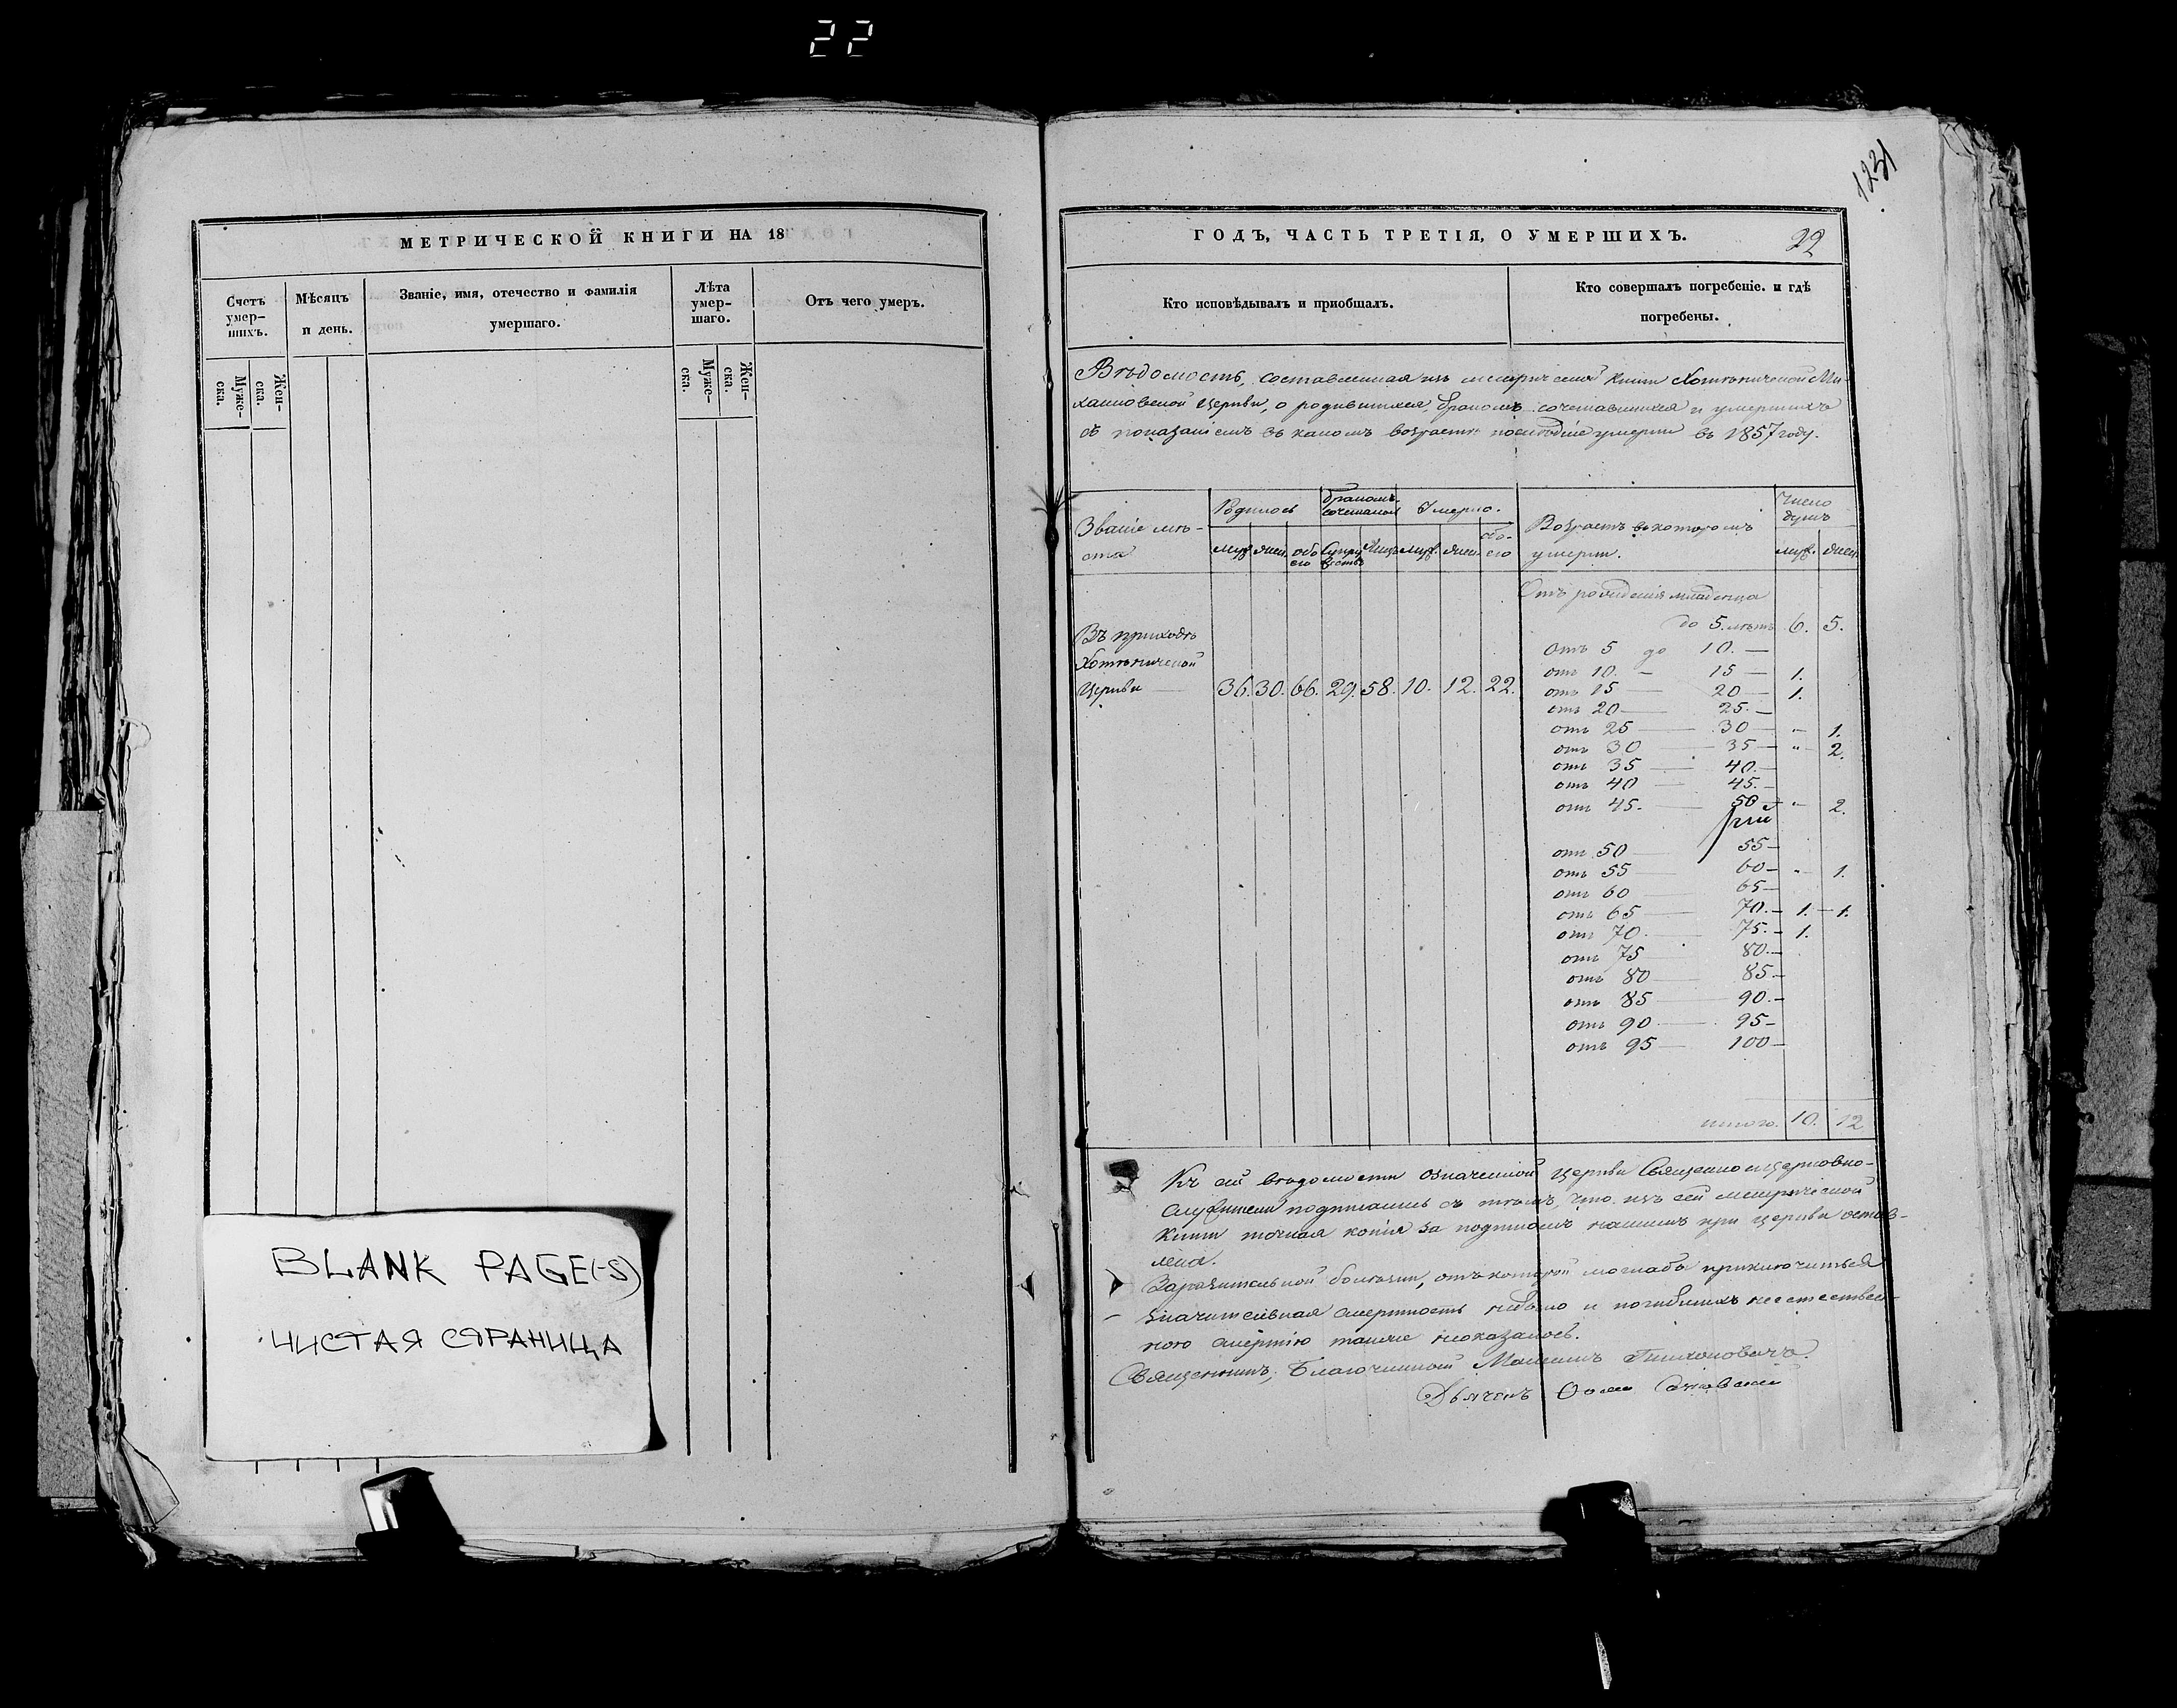 22
МЕТРИЧЕСКОЙ КНИГИ НА 18
Счетъ умер-шихъ.
Мѣсяцъ и день.
Званіе, имя, отечество и фамилія умершаго.
Лѣта умер-шаго.
Отъ чего умеръ.
Муже-ска.
Жен-ска.
Муже-ска.
Жен-ска.
BLANK PAGE(-S)
ЧИСТАЯ СТРАНИЦА
1231
ГОДЪ, ЧАСТЬ ТРЕТІЯ, О УМЕРШИХЪ.
22
Кто исповѣдывалъ и пріобщалъ.
Кто совершалъ погребеніе. и гдѣ погребены.
Вѣдомость, составленная изъ метрической книги Хотѣничской Ми-
хайловской Церкви, о родившихся, бракомъ сочетавшихся и умершихъ
съ показаніемъ въ какомъ возрастѣ послѣдніе умерли въ 1857 году.
Званіе мѣ-ста
Родилось
бракомъ сочеталось
Умерло.
Возрастъ въ которомъ умерли.
Число душъ
муж. жен. обо его Супру жествъ Лицъ муж. жен. обо-его
муж. жен.
Отъ рожденія младенца
до 5. лѣтъ 6. 5.
Въ приходѣ
Хотѣничской
Церкви 36. 30. 66. 29. 58. 10. 12. 22.
отъ 5 до 10. —
отъ 10. — 15 — 1.
отъ 15 — 20 — 1.
отъ 20 — 25. —
отъ 25 — 30 — " 1.
отъ 30 — 35 — " 2.
отъ 35 — 40. —
отъ 40 — 45. —
отъ 45. — 50 — " 2.
отъ 50 — 55 —
отъ 55 — 60 — " 1.
отъ 60 — 65 —
отъ 65 — 70. — 1. — 1.
отъ 70. — 75. — 1.
отъ 75 — 80. —
отъ 80 — 85. —
отъ 85 — 90. —
отъ 90 — 95 —
отъ 95 — 100 —
итого. 10. 12
Къ сей вѣдомости означенной Церкви Священно и церковно-
служители подписались съ тѣмъ, что изъ сей метрической
книги точная копія за подписомъ нашимъ при церкви остав-
лена.
Заразительной болѣзни, отъ которой моглабъ приключиться
значительная смертность небыло и погибшихъ неестествен-
ною смертію также неоказалось.
Священникъ, Благочинный
Дьячекъ Ѳома